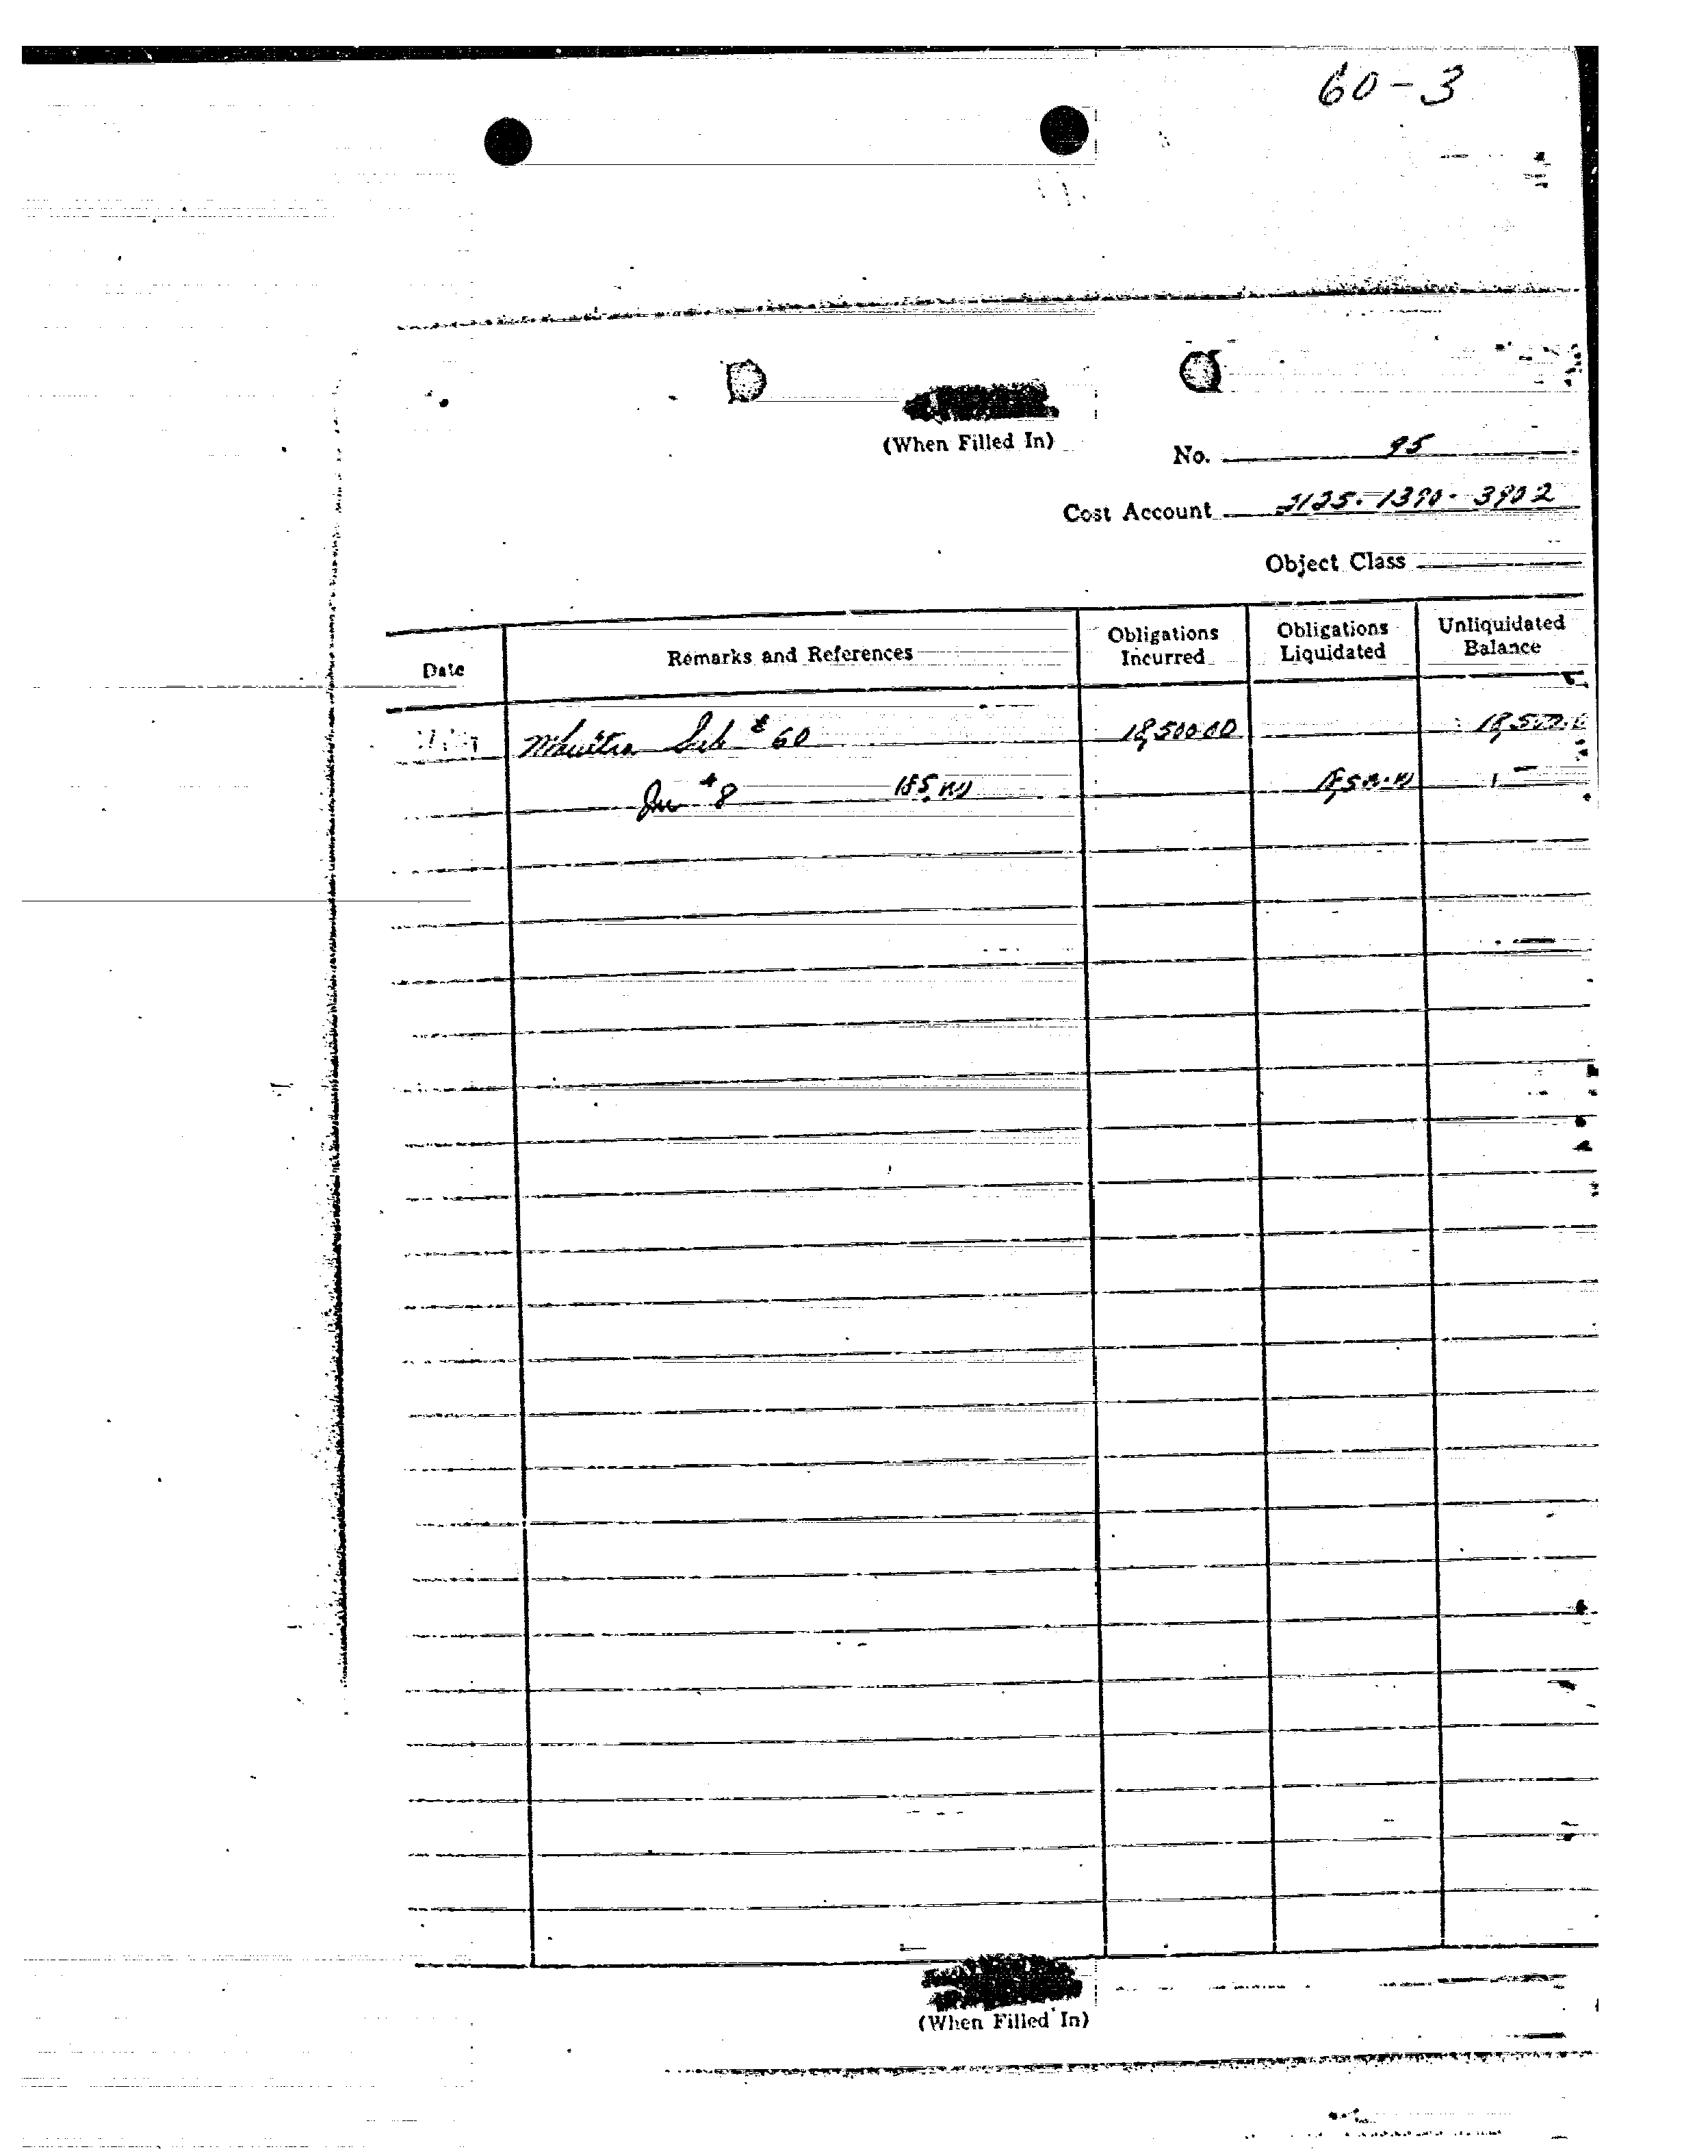 60-3
(When Filled In)
No. 95
Cost Account 2125-1390-3902
Object Class
Date Remarks and References Obligations Incurred Obligations Liquidated Unliquidated Balance
Mkultra Sub # 60 18,500.00 18,500.0
# 8
(When Filled In)